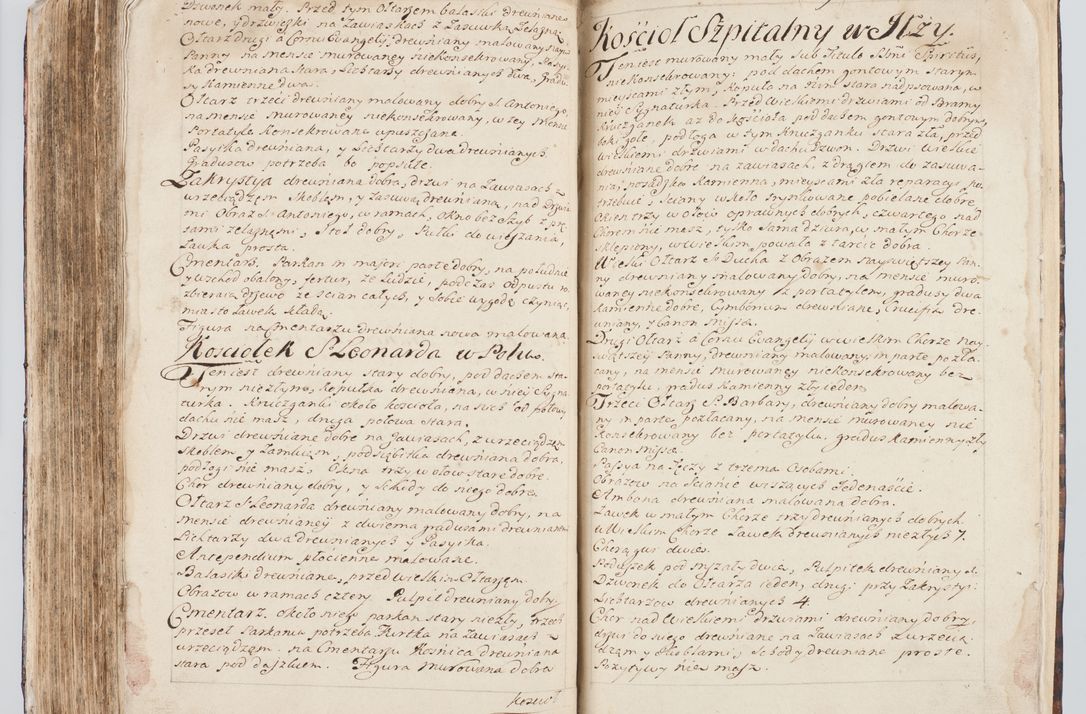 Dzwonek mały. Przed tym Ołtarzem balaski drewniane
nowe, y drzwiczki na zawiaskach z Zasuwką żelazną
Ołtarz drugi a Cornu Evangelij drewniany malowany
Panny na mensie murowaney niekonsekrowany, Passyi-
ka drewniana stara, Lichtarzy drewnianych dwa, gradu-
sy kamienne dwa.
Ołtarz trzeci drewniany malowany dobry S. Antoniego,
na mensie murowaney niekonsekrowany, w tey mensie
Portatyle konsekrowane wpuszczane.
Pasyika drewniana, y Lichtarzy dwa drewnianych.
Gradusow potrzeba bo popsute.
Zakrystya drewniana dobra, drzwi na Zawiasach z
wrzeciądzem Skoblem, y zasuwą drewnianą, nad Drzwia-
mi Obraz S. Antoniego, w ramach, okno bez Szyb z prę-
tami żelaznemi, Stoł dobry, Pułki do wieszania,
Ławka prosta.
Cmentarz. Parkan in majori parte dobry, na południe
y wschod obalony, fertur, że Ludzie, podczas Odpustu ro-
zbieraią drzewo ze ścian całych, y sobie wygodę czyniąc,
miasto Ławek składa.
Figura na Cmentarzu drewniana nowa malowana.
Kosciołek S. Leonarda w Polu.
Ten iest drewniany stary dobry, pod dachem sta-
rym niezłym, kopułka drewniana, w niey Sygna-
turka. Kruczganki około kościoła, na nich od połowy
dachu nie masz, druga połowa stara.
Drzwi drewniane dobre na zawiasach, z wrzeciądzem
Skoblem y zamkiem, podsiębitka drewniana dobra,
podłogi nie masz, Okna trzy w ołow stare dobre.
Chor drewniany dobry, y schody do niego dobre.
Ołtarz S. Leonarda drewniany malowany dobry, na
mensie drewnianey z dwiema gradusami drewnianemi
Lichtarzy dwa drewnianych y Pasyika.
Antependium płocienne malowane.
Balaski drewniane, przed wielkim Ołtarzem.
Obrazow w ramach cztery. Pulpit drewniany dobry
Cmentarz. około niego parkan stary niezły, trzech
przeseł Parkanu potrzeba, Furtka na zawiasach z
wrzeciądzem. na Cmentarzu Kośnica drewniana
stara pod daszkiem. Figura murowana dobra
Kościoł
Kościoł Szpitalny w Iłży.
Ten iest murowany mały sub Titulo S̃mi Spiritus,
niekonsekrowany: pod dachem gontowym starym
mieyscami złym, kopuła na nim stara nadpsowana, w
niey Sygnaturka. Przed wielkiemi drzwiami od Bramy
Kruczganek aż do Kościoła pod dachem gontowym dobrym
boki gołe, podłoga w tym Kruczganku stara zła, przed
wielkiemi, drzwiami w dachu Dzwon. Drzwi wielkie
drewniane dobre na zawiasach, z drągiem do zasuwa-
nia, posadzka kamienna, mieyscami zła reparacyi po-
trzebuie, Sciany wkoło tynkowane pobielane dobre,
okien trzy w ołow oprawnych dobrych, czwartego nad
Chorem nie masz, tylko sama dziura, w małym Chorze
sklepiony, w wielkim powała z tarcic dobra.
Wielki Ołtarz S. Ducha z Obrazem Nayswiętszey Pan-
ny drewniany malowany dobry, na mensie muro-
waney niekonsekrowany z portatylem, gradusy dwa
kamienne dobre, Cymborium drewniane, Crucifix dre-
wniany, y Canon Missæ.
Drugi Ołtarz a Cornu Evangelij w wielkim Chorze Nay-
swiątszey Panny, drewniany malowany, in parte pozła-
cany, na mensie murowaney niekonsekrowany bez
portatylu, gradus kamienny zły ieden.
Trzeci Ołtarz S. Barbary, drewniany dobry malowa-
ny in parte pozłacany, na mensie murowaney nie
konsekrowany bez portatylu, gradus kamienny zły
Canon Missæ.
Passya na Tęczy z trzema Osobami.
Obrazow na ścianie wiszących Jedenaście.
Ambona drewniana malowana dobra.
Ławek w małym Chorze trzy drewnianych dobrych
w Wielkim Chorze Ławek drewnianych niezłych 7.
Chorągwi dwie.
Poduszek pod mszały dwie, Pulpitek drewniany 1.
Dzwonek do Ołtarza ieden, drugi przy Zakrystyi
Lichtarzow drewnianych 4.
Chor nad Wielkiemi Drzwiami drewniany dobry,
drzwi do niego drewniane na Zawiasach z wrzecią-
dzem y skoblami, schody drewniane proste.
Pozytywy nie masz.